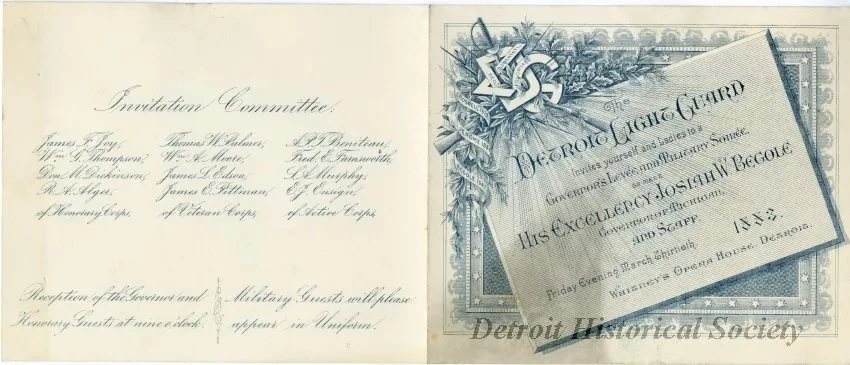 Invitation Committee.
James F. Joy,
Wm. G. Thompson,
Don M. Dickinson,
R. A. Alger,
of Honorary Corps,
Thomas W. Palmer,
Wm. A. Moore,
James L. Edson,
James E. Pittman,
of Veteran Corps,
A. P. T. Beniteau,
Fred. E. Farnsworth,
L. A. Murphy,
E. J. Ensign,
of Active Corps,
Reception of the Governor and
Honorary Guests at nine o'clock.
Military Guests will please
appear in Uniform.
The
Detroit Light Guard
Invites yourself and Ladies to a
Governor's Levee and Military Soirée,
His Excellency Josiah W. Begole
Governor of Michigan,
and Staff.
Friday Evening March Thirtieth, 1883.
Whitney's Opera House, Detroit.
Detroit Historical Society